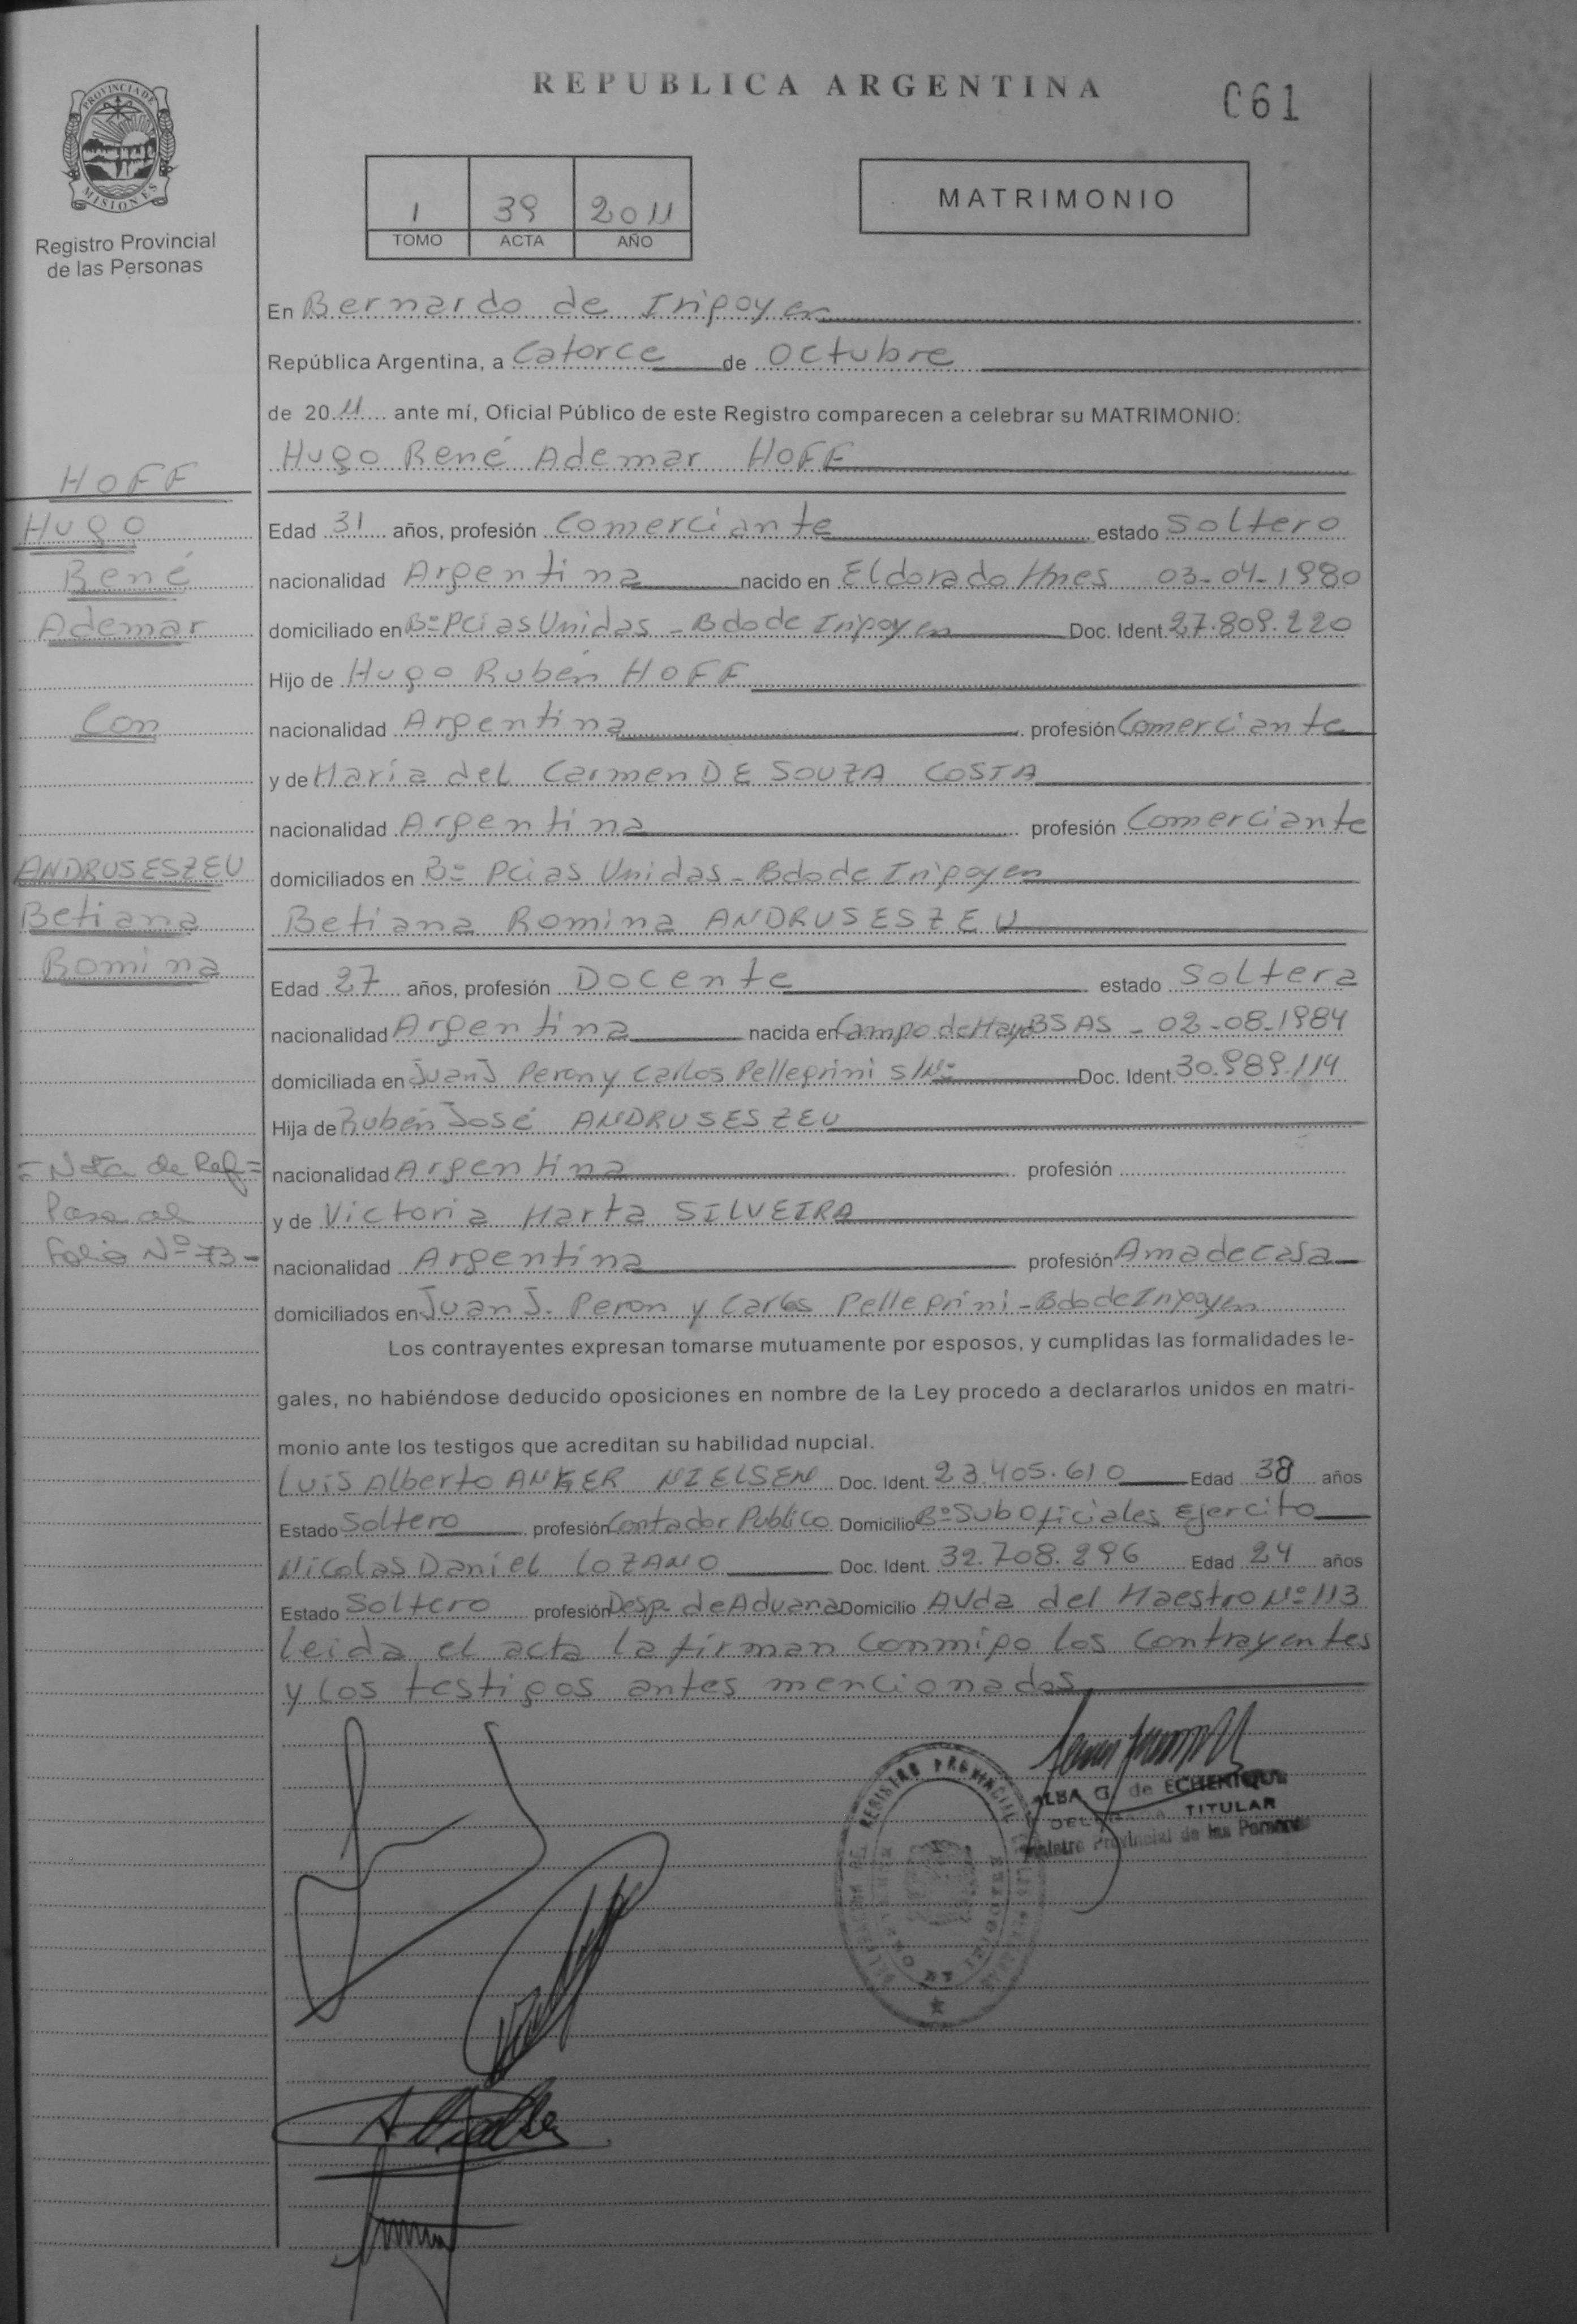 REPUBLICA ARGENTINA
061
PROVINCIA DE
MISIONES
Registro Provincial
de las Personas
1 39 2011
TOMO ACTA AÑO
MATRIMONIO
En Bernardo de Irigoyen
República Argentina, a Catorce de Octubre
de 2011 ante mí, Oficial Público de este Registro comparecen a celebrar su MATRIMONIO:
Hugo René Ademar HOFF
HOFF
Hugo
René
Ademar
Con
ANDRUSESZEU
Betiana
Romina
=Nota de Ref=
Pasa al
Folio Nº 73-
Edad 31 años, profesión Comerciante estado Soltero
nacionalidad Argentina nacido en Eldorado Mnes 03-04-1980
domiciliado en Bº Pcias Unidas - Bdo de Irigoyen Doc. Ident. 27.809.220
Hijo de Hugo Rubén HOFF
nacionalidad Argentina profesión Comerciante
y de María del Carmen DE SOUZA COSTA
nacionalidad Argentina profesión Comerciante
domiciliados en Bº Pcias Unidas - Bdo de Irigoyen
Betiana Romina ANDRUSESZEU
Edad 27 años, profesión Docente estado Soltera
nacionalidad Argentina nacida en Campo de Mayo BS AS - 02-08-1984
domiciliada en Juan J Peron y Carlos Pellegrini s/Nº Doc. Ident. 30.989.114
Hija de Rubén José ANDRUSESZEU
nacionalidad Argentina profesión
y de Victoria Marta SILVEIRA
nacionalidad Argentina profesión Ama de casa
domiciliados en Juan J. Peron y Carlos Pellegrini - Bdo de Irigoyen
Los contrayentes expresan tomarse mutuamente por esposos, y cumplidas las formalidades le-
gales, no habiéndose deducido oposiciones en nombre de la Ley procedo a declararlos unidos en matri-
monio ante los testigos que acreditan su habilidad nupcial.
Luis Alberto ANKER NIELSEN Doc. Ident. 23.405.610 Edad 38 años
Estado Soltero profesión Contador Publico Domicilio Bº Sub Oficiales Ejercito
Nicolas Daniel LOZANO Doc. Ident. 32.708.296 Edad 24 años
Estado Soltero profesión Desp. de Aduana Domicilio Avda del Maestro Nº 113
leida el acta la firman conmigo los contrayentes
y los testigos antes mencionados
REGISTRO PROVINCIAL
ALBA G. de ECHENIQUE
DELEGADA TITULAR
Registro Provincial de las Personas